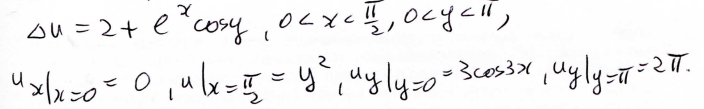 Δu = 2 + e^x cosy , 0 < x < π/2, 0 < y < π,
u_x|_{x=0} = 0 , u|_{x=π/2} = y², u_y|_{y=0} = 3cos3x , u_y|_{y=π} = 2π.